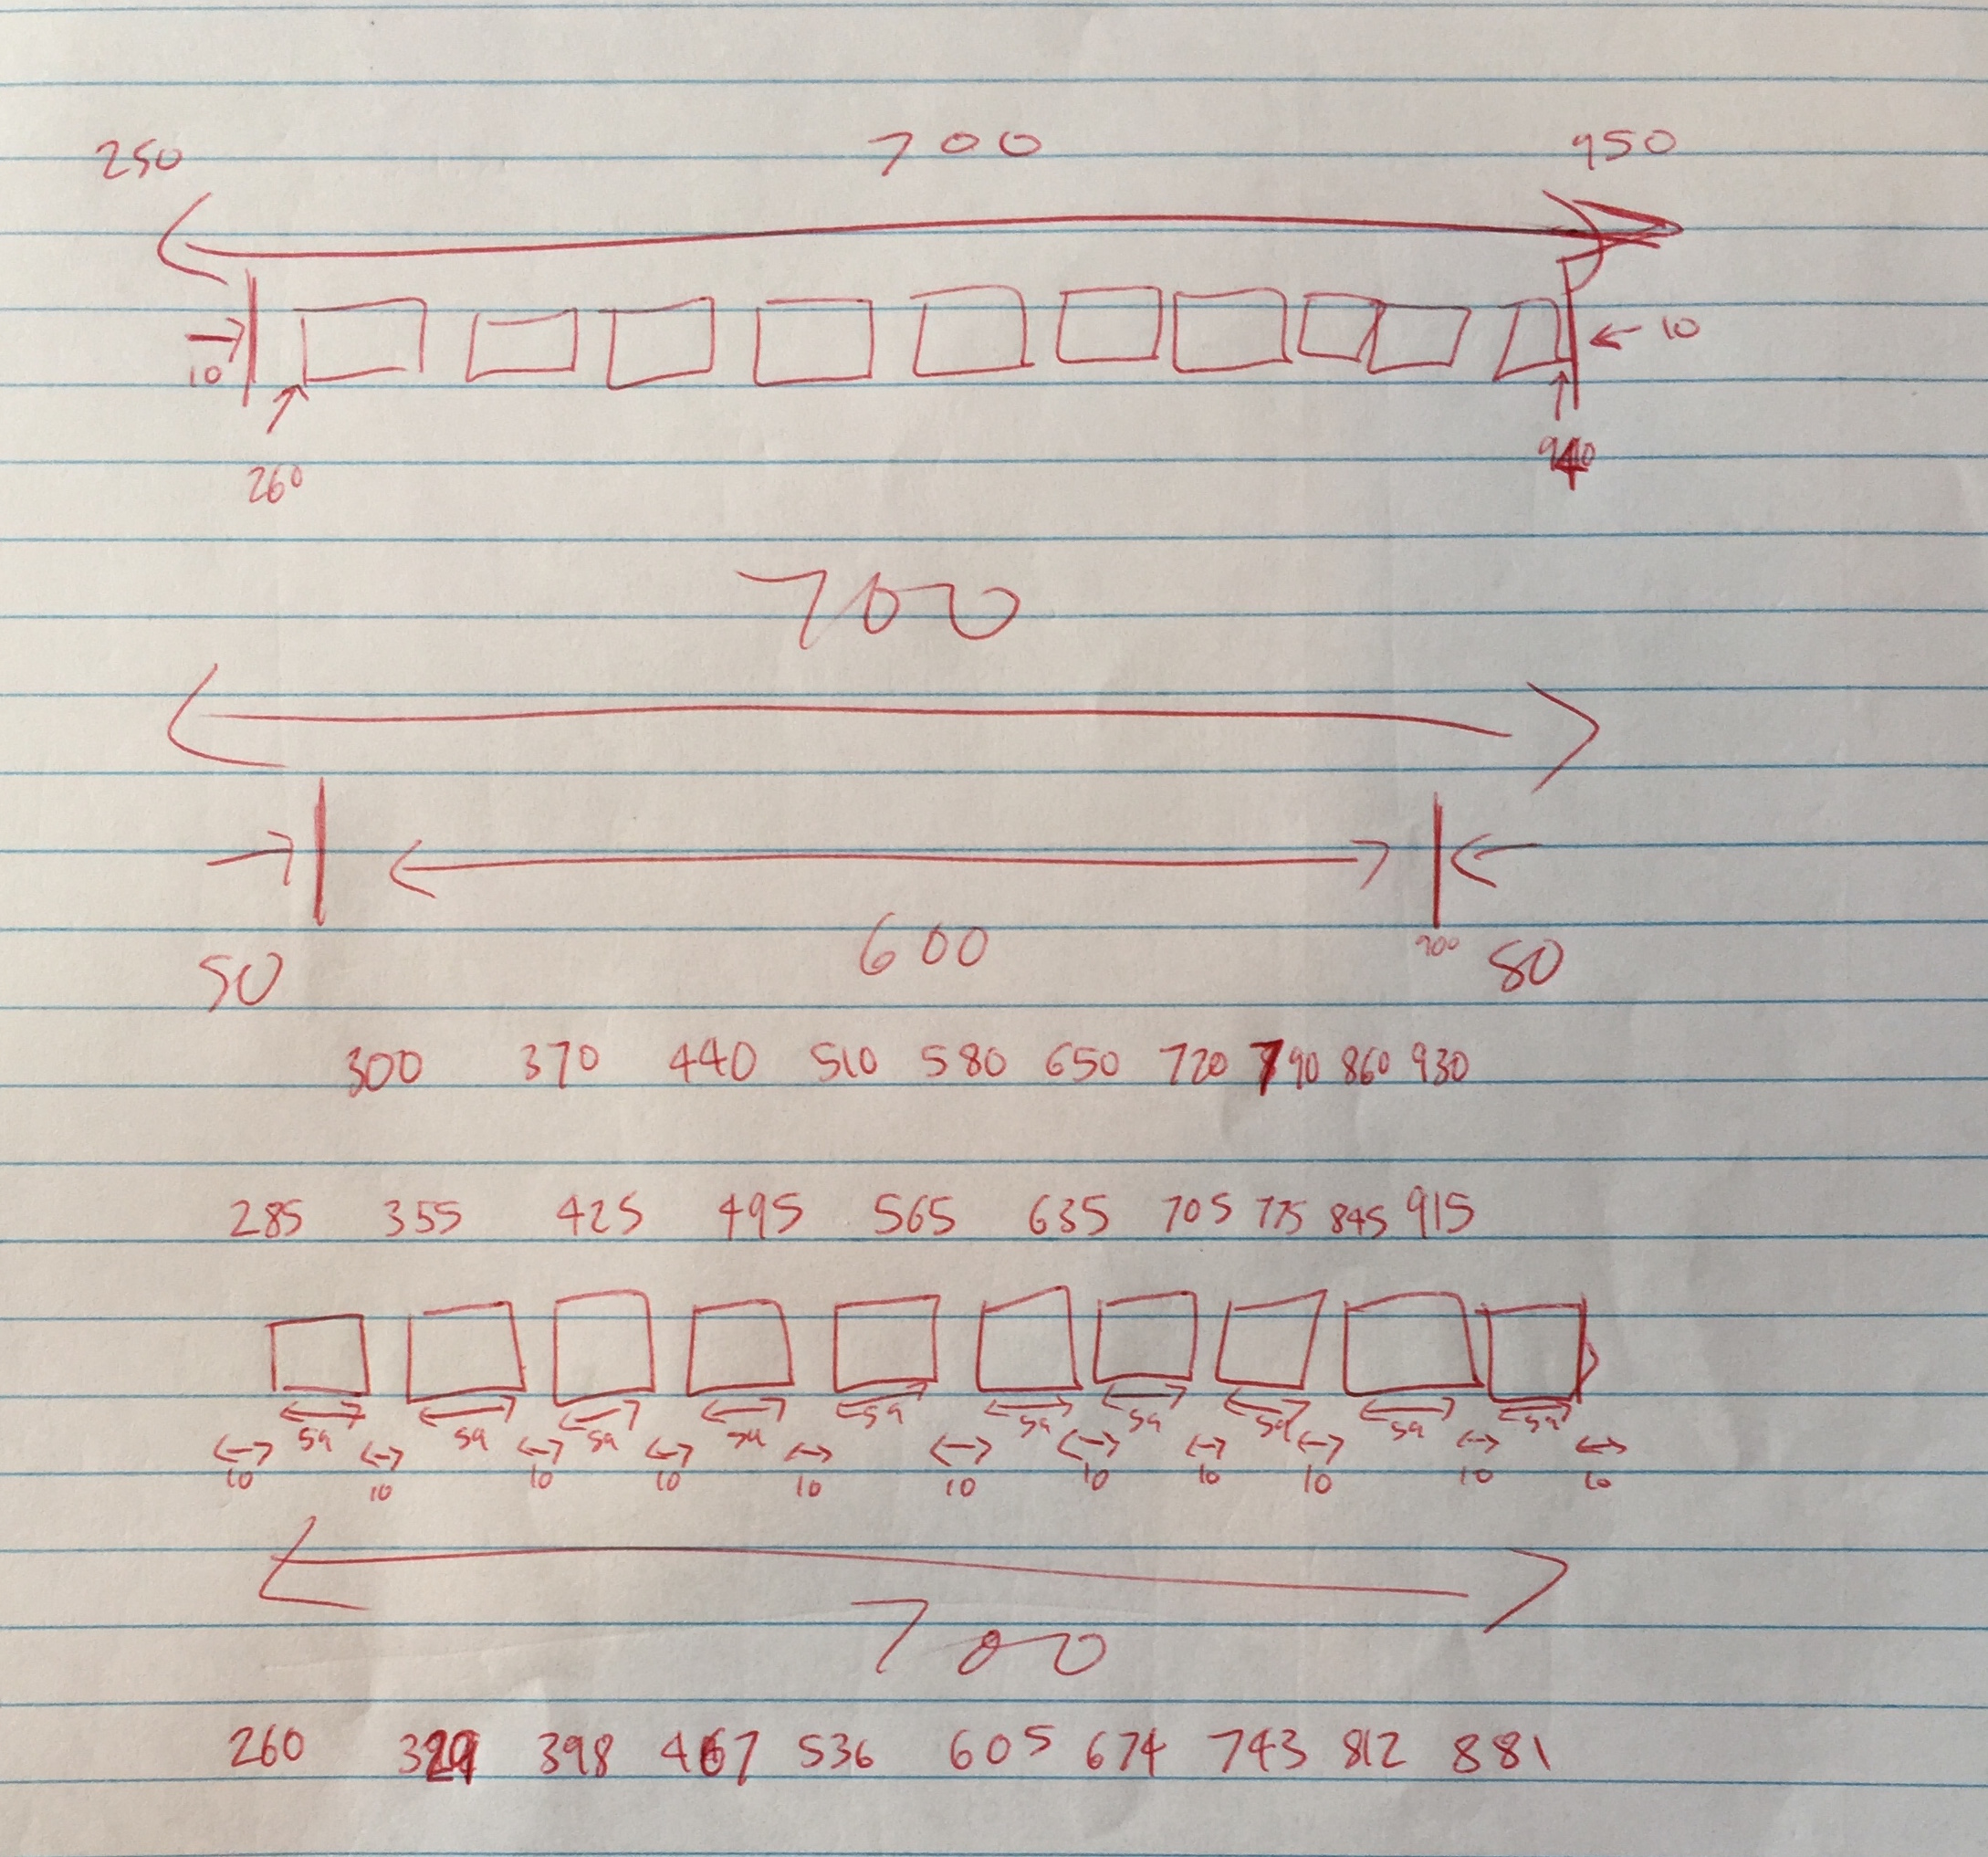 250 700 950
10 10
260 940
700
600
50 900 50
300 370 440 510 580 650 720 790 860 930
285 355 425 495 565 635 705 775 845 915
59 59 59 59 59 59 59 59 59 59
10 10 10 10 10 10 10 10 10 10 10
700
260 329 398 467 536 605 674 743 812 881